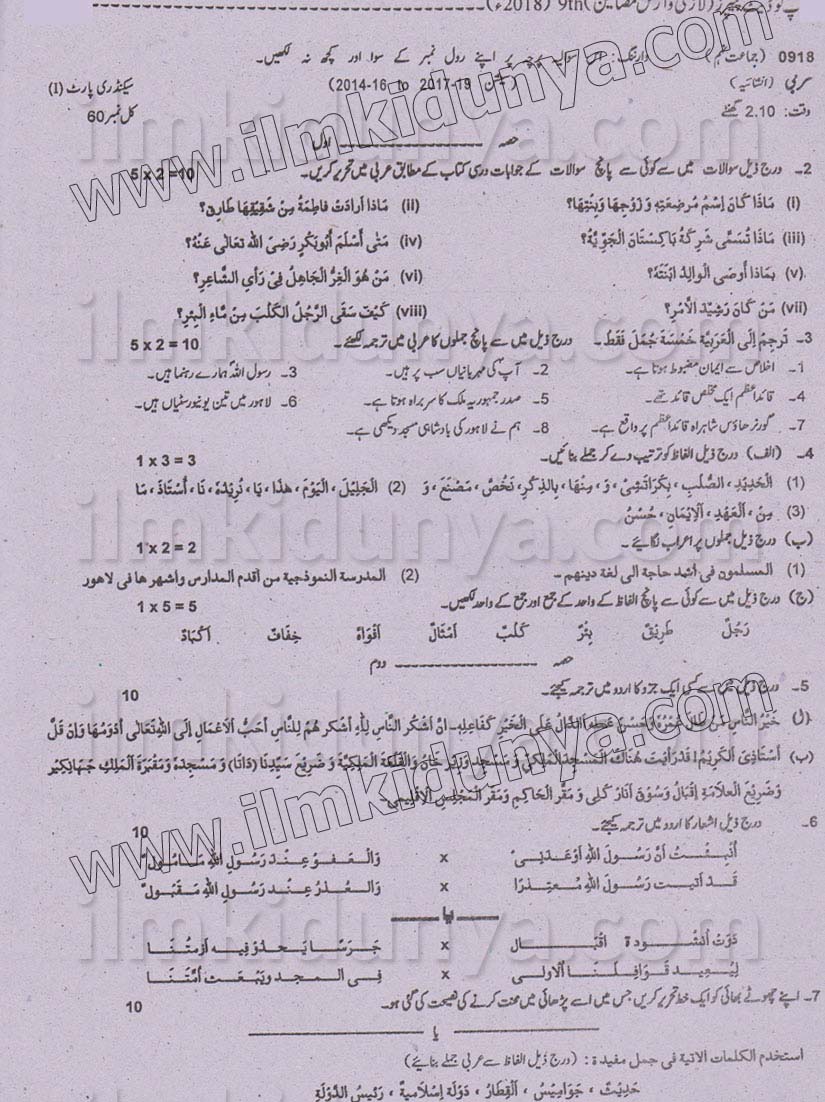 (لازمی وارس مضامین) 9th (2018ء)
0918 (جماعت نہم) وارننگ: اس سوالیہ پرچہ پر اپنے رول نمبر کے سوا اور کچھ نہ لکھیں۔
عربی (انشائیہ) (سیشن 2014-16 to 2017-19) سیکنڈری پارٹ (I)
وقت: 2.10 گھنٹے کل نمبر 60
حصہ اول
2۔ درج ذیل سوالات میں سے کوئی سے پانچ سوالات کے جوابات درسی کتاب کے مطابق عربی میں تحریر کریں۔ 5 x 2 =10
(i) مَاذَا كَانَ اِسْمُ مُرضِعَتِهٖ وَ زَوْجِهَا وَبِنْتِهَا؟ (ii) مَاذَا أَرَادَتْ فَاطِمَةُ مِنْ شَقِيْقِهَا طَارِقٍ؟
(iii) مَاذَا تُسَمّٰى شَرِكَةُ بَاكِسْتَانَ الْجَوِّيَّةُ؟ (iv) مَتٰى أَسْلَمَ أَبُوبَكْرٍ رَضِىَ الله تَعَالٰى عَنْهُ؟
(v) بِمَاذَا أَوصَى الْوَالِدُ ابْنَتَهُ؟ (vi) مَنْ هُوَ الْغِرُّ الْجَاهِلُ فِىْ رَأيِ الشَّاعِرِ؟
(vii) مَنْ كَانَ رَشِيْدَ الْأَمْرِ؟ (viii) كَيْفَ سَقَى الرَّجُلُ الْكَلْبَ مِنْ مَّاءِ الْبِئْرِ؟
3۔ تَرجِمْ اِلَى الْعَرَبِيَّةِ خَمْسَةَ جُمَلٍ فَقَطْ۔ درج ذیل میں سے پانچ جملوں کا عربی میں ترجمہ لکھئے۔ 5 x 2 = 10
1۔ اخلاص سے ایمان مضبوط ہوتا ہے۔ 2۔ آپ کی مہربانیاں سب پر ہیں۔ 3۔ رسول اللہؐ ہمارے رہنما ہیں۔
4۔ قائداعظم ایک مخلص قائد تھے۔ 5۔ صدر جمہوریہ ملک کا سربراہ ہوتا ہے۔ 6۔ لاہور میں تین یونیورسٹیاں ہیں۔
7۔ گورنر ھاؤس شاہراہ قائداعظم پر واقع ہے۔ 8۔ ہم نے لاہور کی بادشاہی مسجد دیکھی ہے۔
4۔ (الف) درج ذیل الفاظ کو ترتیب دے کر جملے بنائیں۔ 1 x 3 = 3
(1) الْحَدِيْدِ، الصُّلْبِ، بِكَرَاتَشِىْ، وَ، مِنْهَا، بِالذِّكْرِ، نَخُصُّ، مَصْنَعَ، وَ (2) الْجَلِيْلَ، الْيَوْمَ، هٰذَا، يَا، نُرِيْدُهٗ، نَا، أُسْتَاذَ، مَا
(3) مِنْ، الْعَهْدِ، اَلْاِيْمَانِ، حُسْنُ
(ب) درج ذیل جملوں پر اعراب لگائیے۔ 1 x 2 = 2
(1) المسلمون فى أشد حاجة الى لغة دينهم۔ (2) المدرسة النموذجية من أقدم المدارس وأشهرها فى لاهور
(ج) درج ذیل میں سے کوئی سے پانچ الفاظ کے واحد کے جمع اور جمع کے واحد لکھیں۔ 1 x 5 = 5
رَجُلٌ طَرِيْقٌ بِئْرٌ كَلْبٌ اَمْثَالٌ اَفْوَاهٌ خِفَافٌ اَكْبَادٌ
حصہ دوم
5۔ درج ذیل میں سے کسی ایک جزو کا اردو میں ترجمہ کیجئے۔ 10
خَيْرُ النَّاسِ مَنْ طَالَ عُمْرُهٗ وَحَسُنَ عَمَلُهٗ۔ اَلدَّالُّ عَلَى الْخَيْرِ كَفَاعِلِهٖ۔ اِنَّ أَشْكَرَ النَّاسِ لِلّٰهِ أَشْكَرُ هُمْ لِلنَّاسِ أَحَبُّ الْاَعْمَالِ اِلَى اللهِ تَعَالٰى أَدْوَمُهَا وَاِنْ قَلَّ
(ب) أُسْتَاذِىَ الْكَرِيْمُ! قَدْ رَأَيْتُ هُنَاكَ الْمَسْجِدَ الْمَلِكِىَّ وَ مَسْجِدَ وَزِيْرِ خَانْ وَالْقَلْعَةَ الْمَلِكِيَّةَ وَ ضَرِيْحَ سَيِّدِنَا (دَاتَا) وَ مَسْجِدَهٗ وَمَقْبَرَةَ الْمَلِكِ جَهَانْكِيْر
وَ ضَرِيْحَ الْعَلَّامَةِ اِقْبَالْ وَ سُوْقَ اَنَارْ كَلِى وَ مَقَرَّ الْحَاكِمِ وَ مَقَرَّ الْمَجْلِسِ الْاِقْلِيْمِىِّ۔
6۔ درج ذیل اشعار کا اردو میں ترجمہ کیجئے۔ 10
أُنْبِئْتُ أَنَّ رَسُولَ اللهِ أَوْعَدَنِىْ x وَالْعَفْوُ عِنْدَ رَسُولِ اللهِ مَأْمُولُ
قَدْ أَتَيْتُ رَسُولَ اللهِ مُعْتَذِرًا x وَالْعُذْرُ عِنْدَ رَسُولِ اللهِ مَقْبُولُ
یا
دَوَّتْ أُنْشُودَةُ اقْبَالٍ x جَرَسًا يَحْدُو فِيْهِ أزْمَتُنَا
لِيُعِيْدَ قَوَافِلَنَا الْاُولٰى x فِى الْمَجْدِ وَيَبْعَثَ أُمَّتَنَا
7۔ اپنے چھوٹے بھائی کو ایک خط تحریر کریں جس میں اسے پڑھائی میں محنت کرنے کی نصیحت کی گئی ہو۔ 10
یا
استخدم الكلمات الاتية فى جمل مفيدة: (درج ذیل الفاظ سے عربی جملے بنائیے)
حَدِيْثٌ، جَوَامِيْسُ، اَلْقِطَارُ، دَوْلَةٌ اِسْلَامِيَّةٌ، رَئِيْسُ الدَّوْلَةِ
www.ilmkidunya.com
ilmkidunya.com